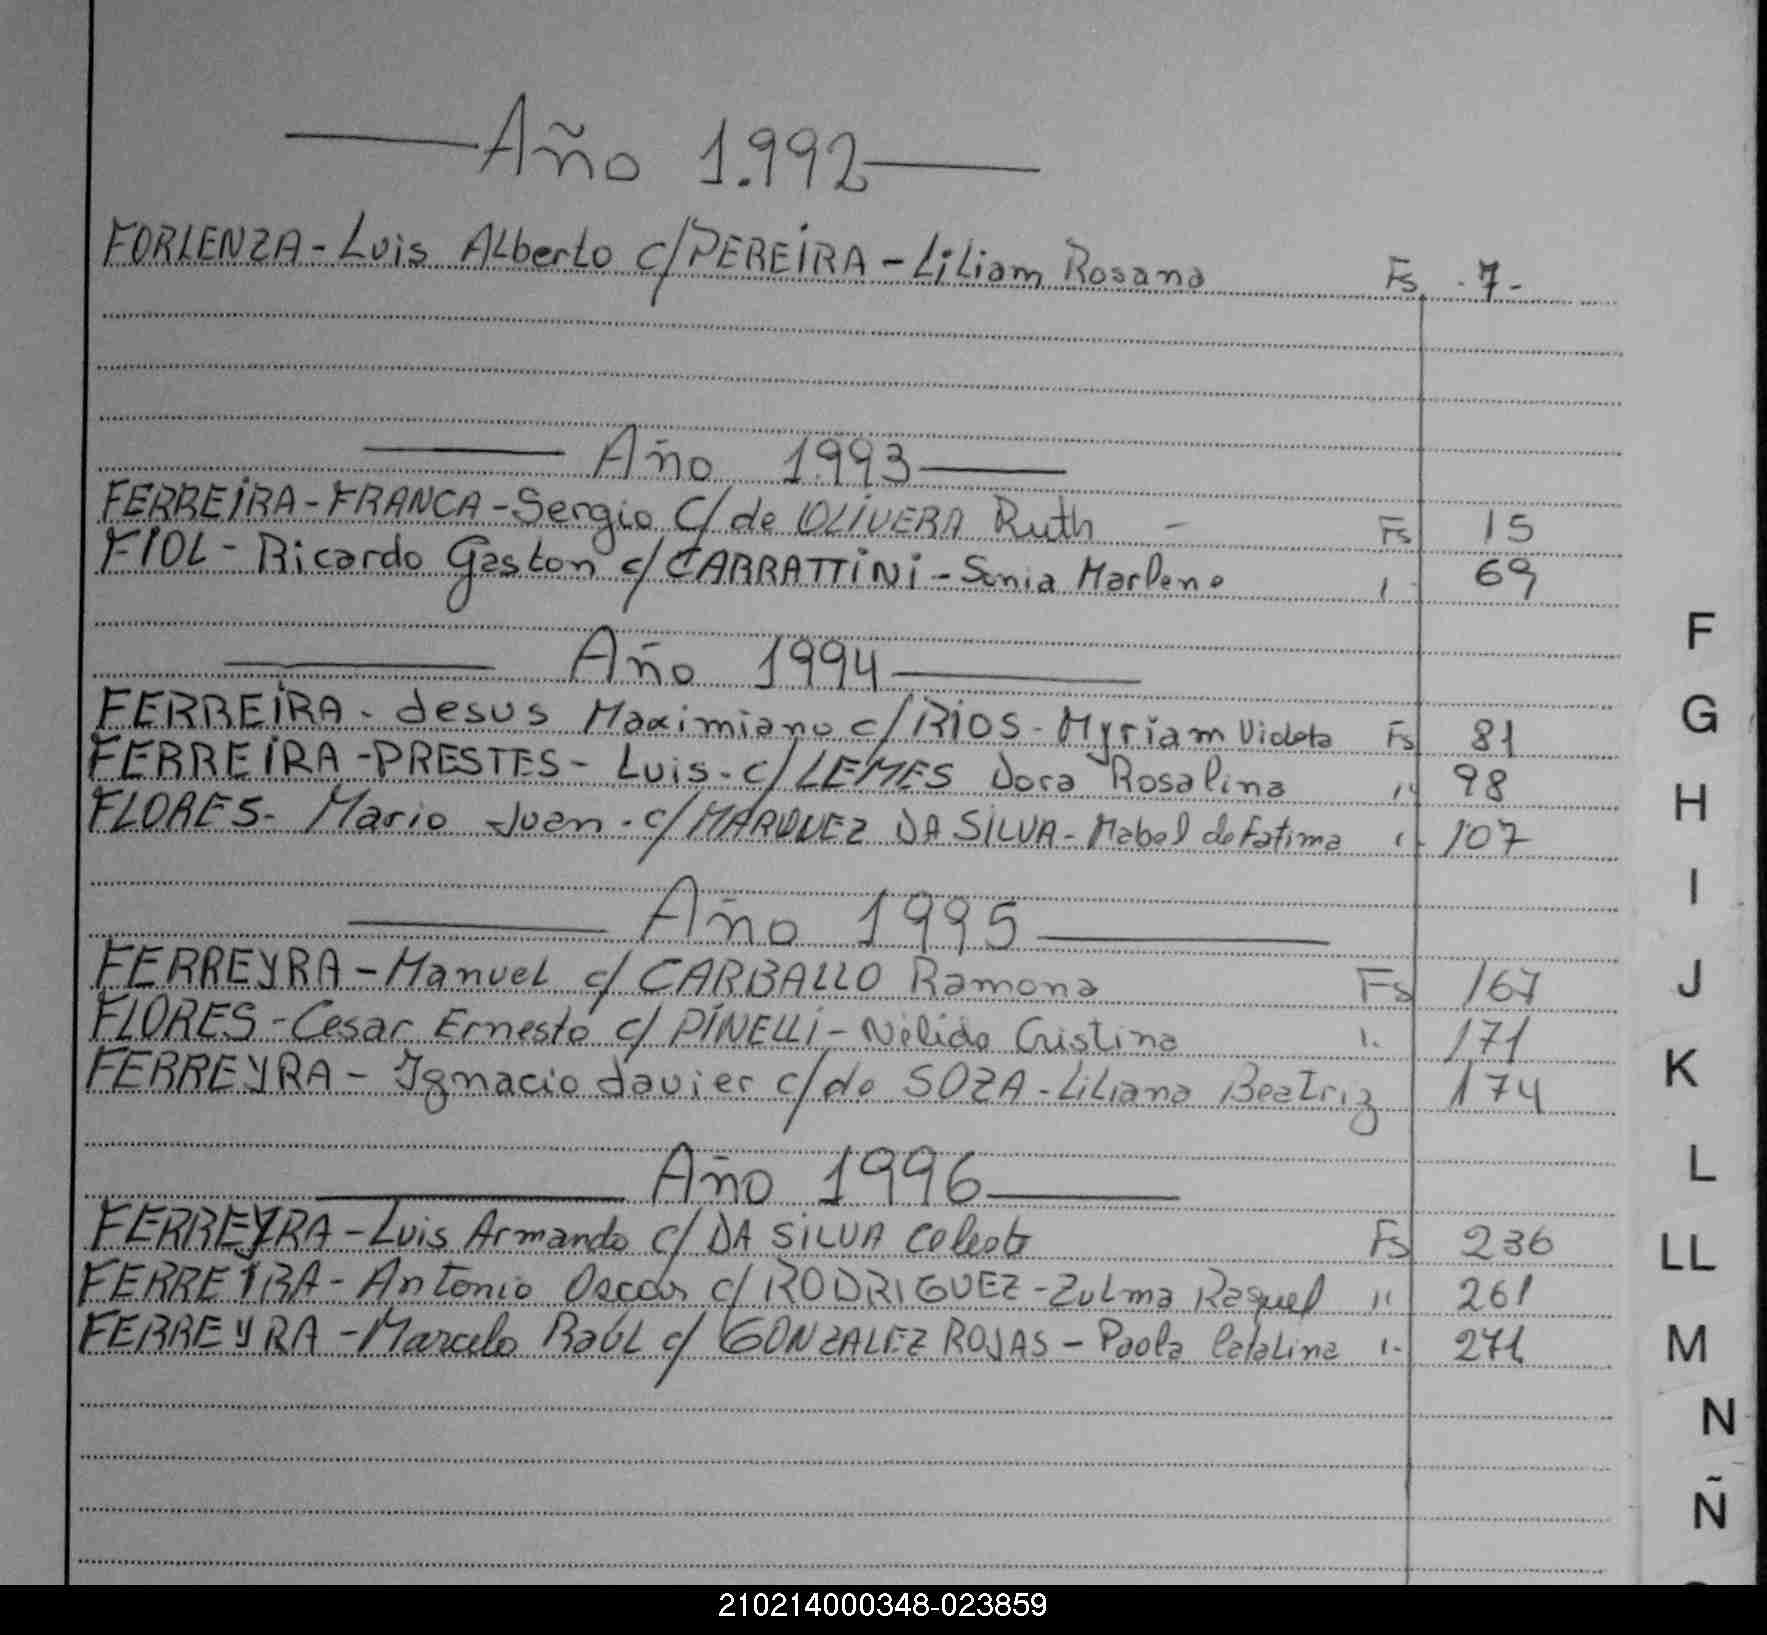 Año 1.992
FORLENZA - Luis Alberto c/ PEREIRA - Liliam Rosana Fs. - 7 -
Año 1993
FERREIRA - FRANCA - Sergio C/ de OLIVERA Ruth - Fs 15
FIOL - Ricardo Gaston c/ CARRATTINI - Sonia Marlene " 69
Año 1994
FERREIRA - Jesus Maximiano c/ RIOS - Myriam Violeta Fs 81
FERREIRA - PRESTES - Luis - c/ LEMES Dora Rosalina " 98
FLORES - Mario Juan - c/ MARQUEZ DA SILVA - Mabel de Fatima " 107
Año 1995
FERREYRA - Manuel c/ CARBALLO Ramona Fs 167
FLORES - Cesar Ernesto c/ PINELLI - Nélida Cristina " 171
FERREYRA - Ignacio Javier c/ de SOZA - Liliana Beatriz 174
Año 1996
FERREYRA - Luis Armando c/ DA SILVA Celeste Fs 236
FERREIRA - Antonio Oscar c/ RODRIGUEZ - Zulma Raquel " 261
FERREYRA - Marcelo Raúl c/ GONZALEZ ROJAS - Paola Catalina " 271
F
G
H
I
J
K
L
LL
M
N
Ñ
210214000348-023859